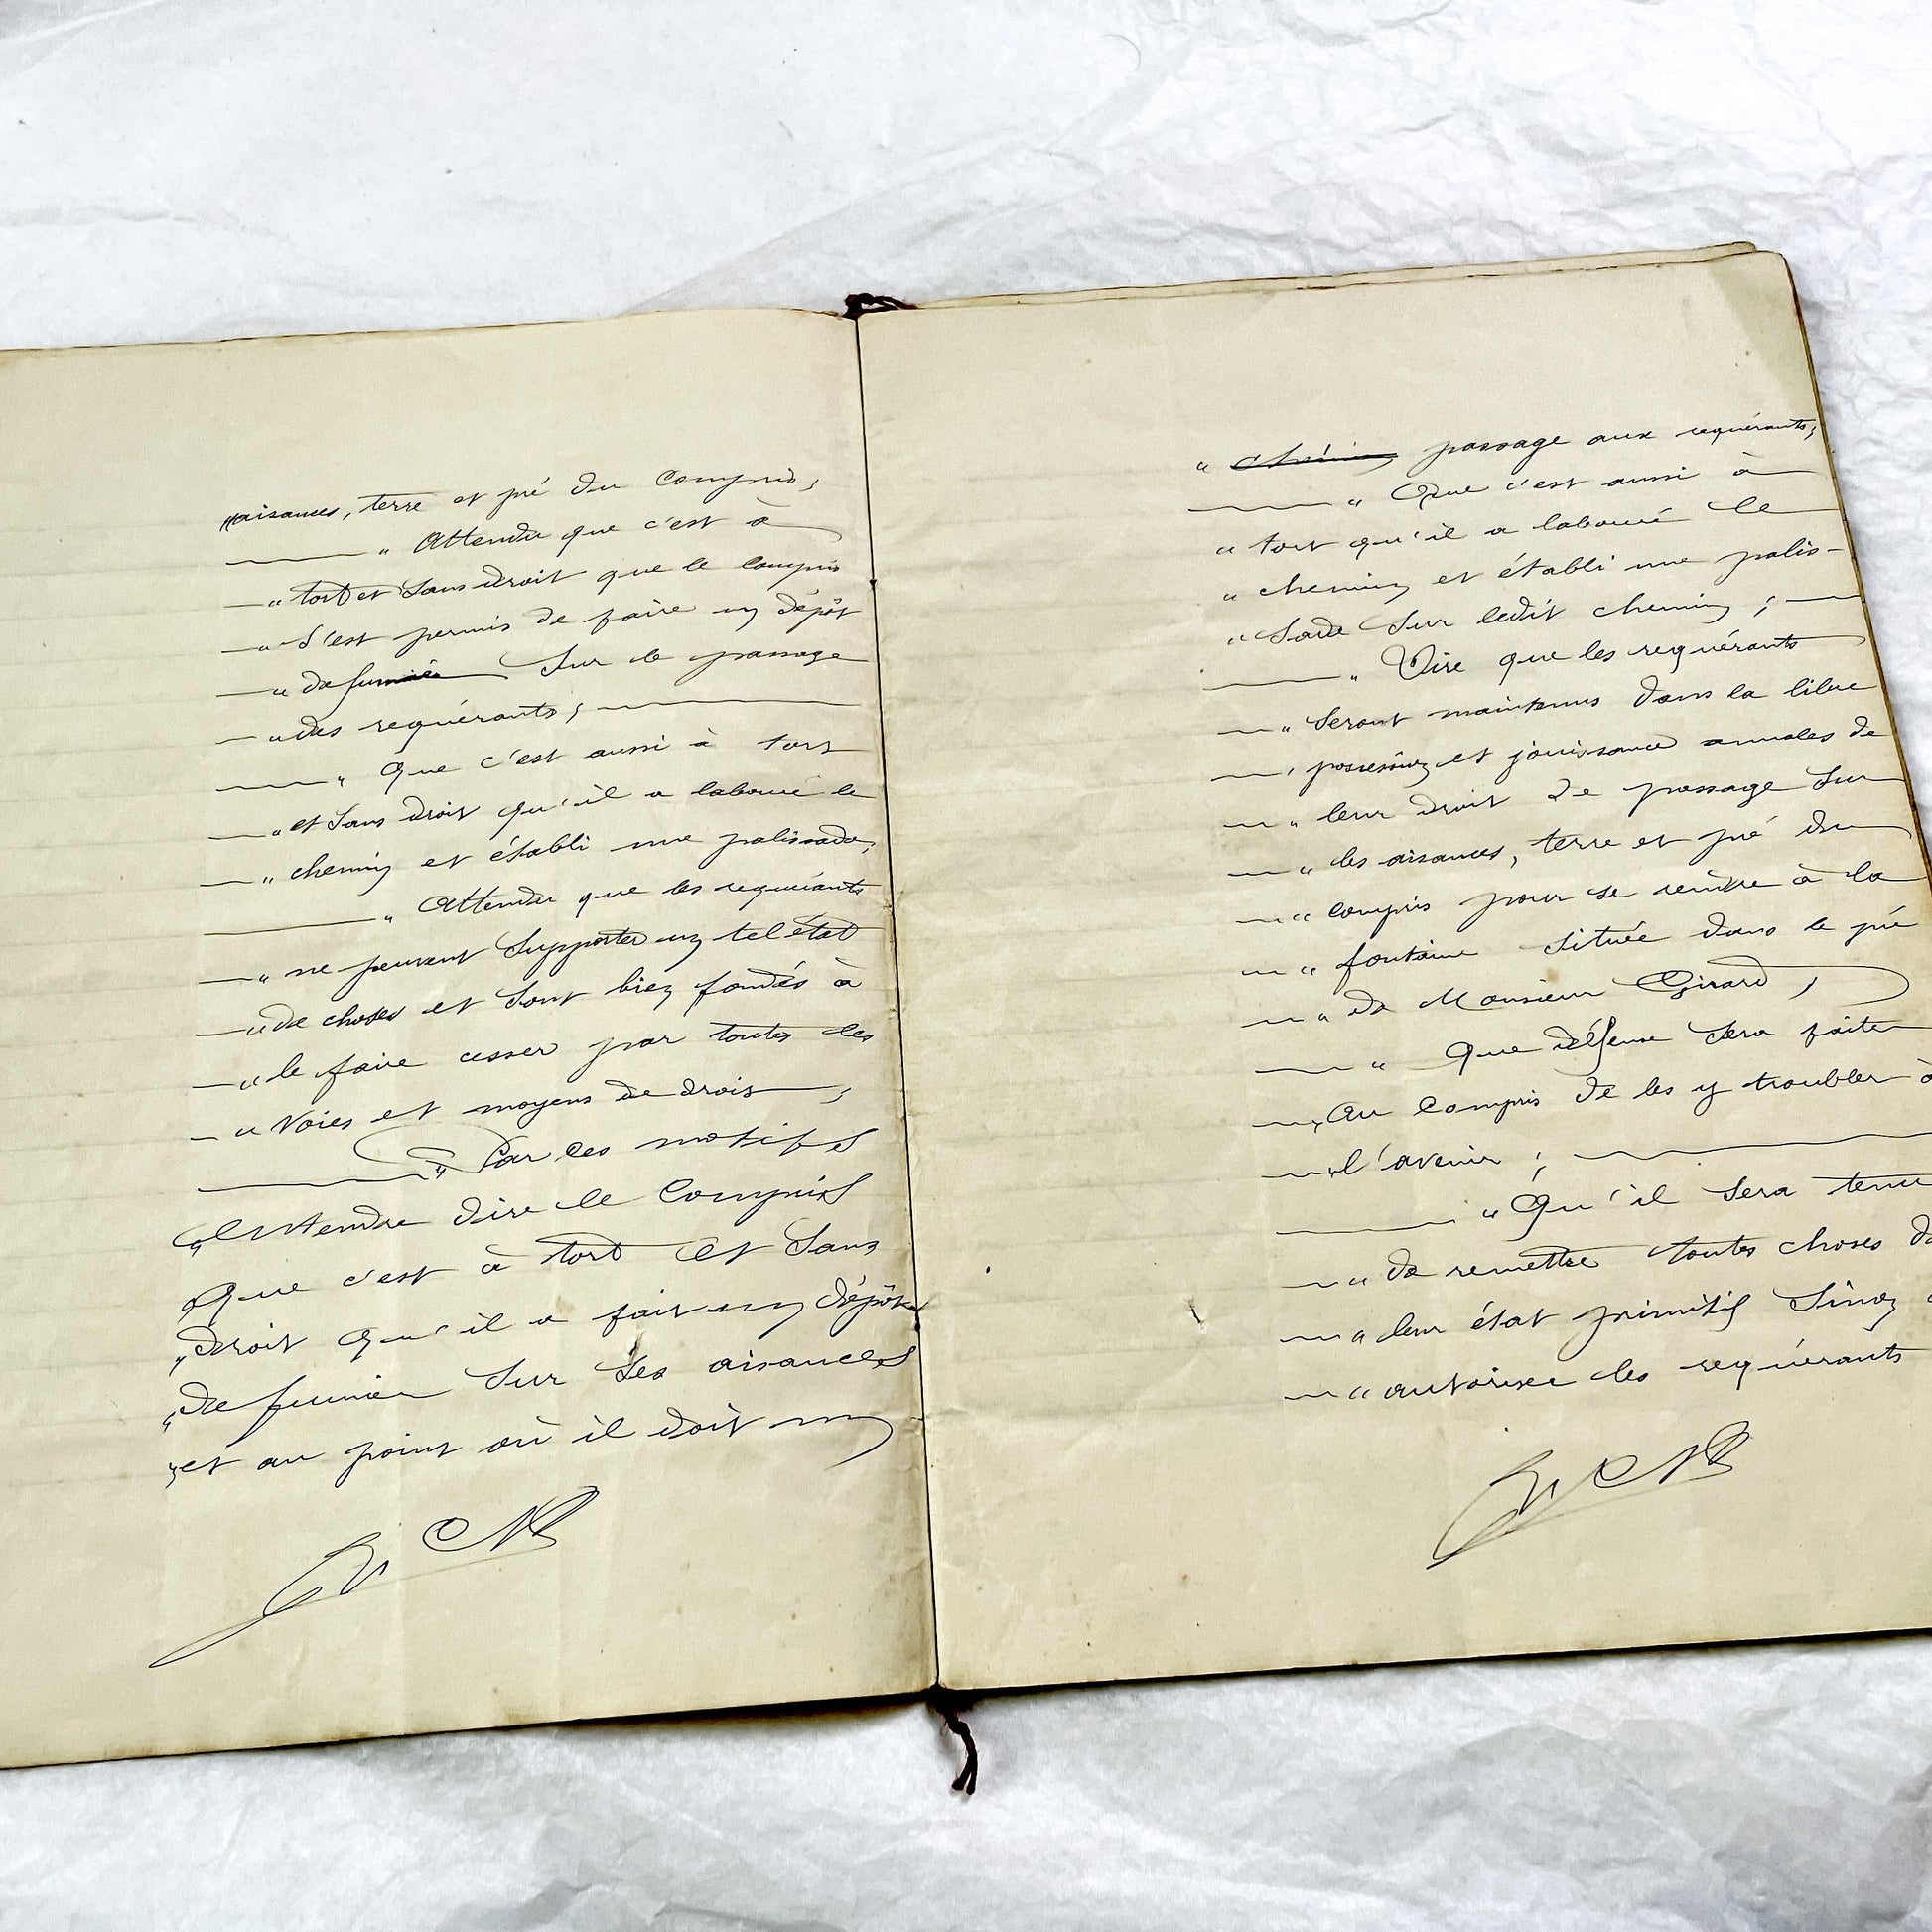 "aisances, terre et pré du compris,
" Attendu que c'est à
" tort et sans droit que le compris
" s'est permis de faire un dépôt
" de fumier sur le passage
" des requérants ;
" Que c'est aussi à tort
" et sans droit qu'il a labouré le
" chemin et établi une palissade,
" Attendu que les requérants
" ne peuvent supporter un tel état
" de choses et sont bien fondés à
" le faire cesser par toutes les
" voies et moyens de droit ;
" Par ces motifs
" Entendre dire le compris
" Que c'est à tort et sans
" droit qu'il a fait un dépôt
" de fumier sur ses aisances
" et au point où il doit un
" chemin passage aux requérants,
" Que c'est aussi à
" tort qu'il a labouré le
" chemin et établi une palis-
" sade sur ledit chemin ;
" Dire que les requérants
" seront maintenus dans la libre
" possession et jouissance annales de
" leur droit de passage sur
" les aisances, terre et pré du
" compris pour se rendre à la
" fontaine située dans le pré
" de Monsieur Girard,
" Que défense sera faite
" au compris de les y troubler à
" l'avenir ;
" Qu'il sera tenu
" de remettre toutes choses
" leur état primitif sinon
" autoriser les requérants